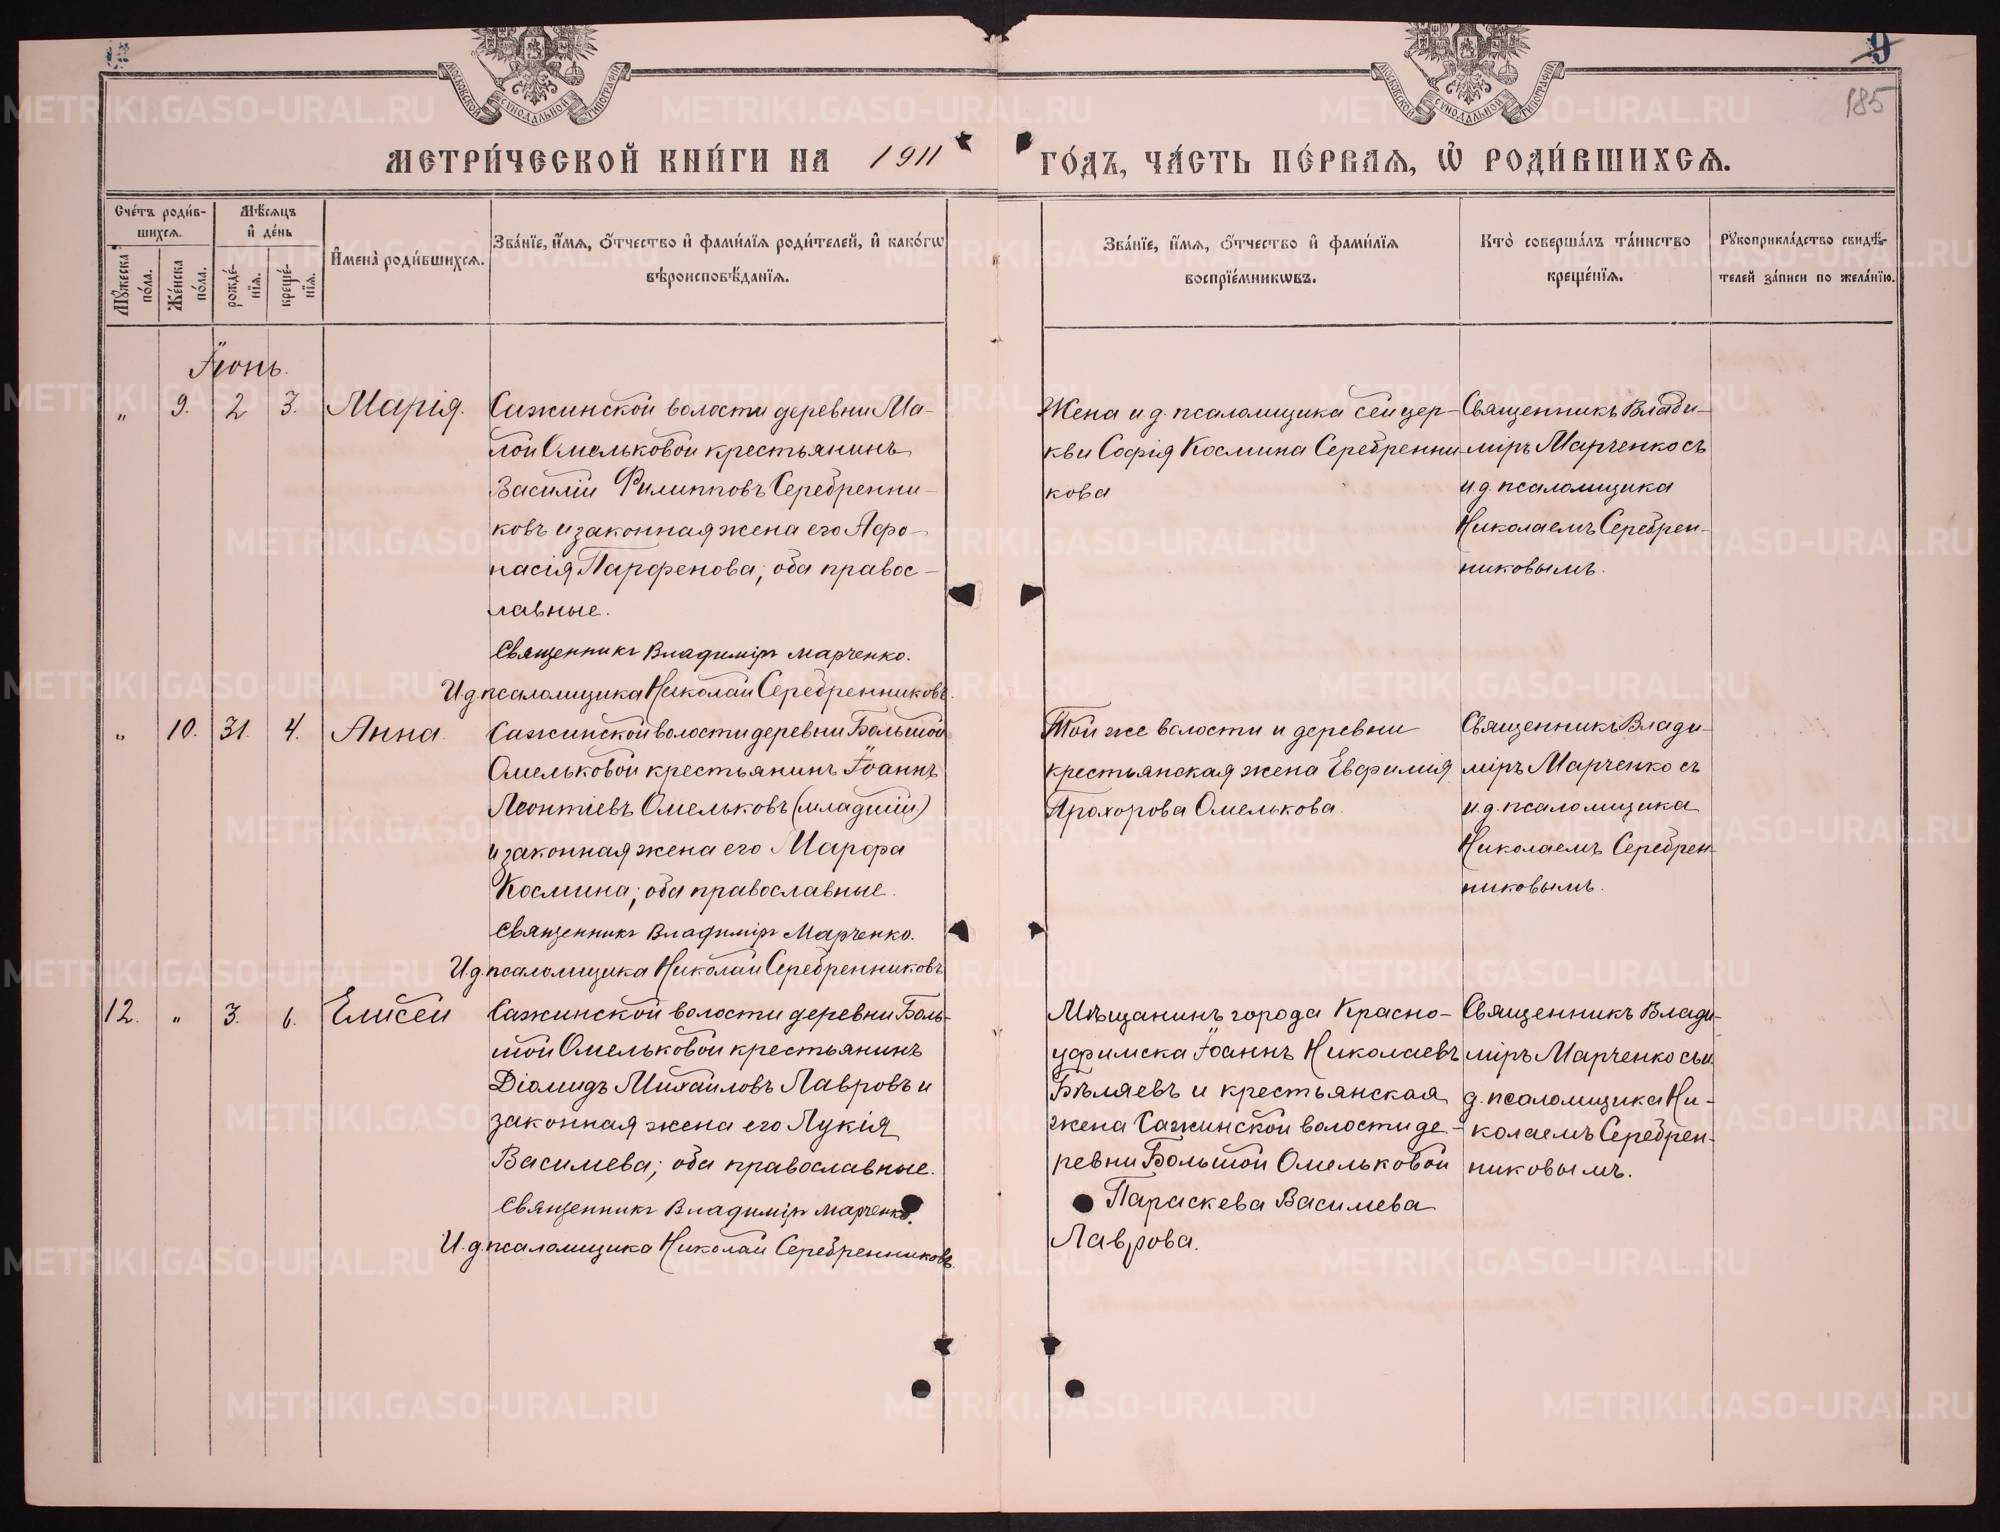 185
МОСКОВСКОЙ СѴНОДАЛЬНОЙ ТИПОГРАФІИ
МОСКОВСКОЙ СѴНОДАЛЬНОЙ ТИПОГРАФІИ
МЕТРИ́ЧЕСКОЙ КНИ́ГИ НА 1911 ГО́ДЪ, ЧА́СТЬ ПЕ́РВАЯ, Ѡ҆ РОДИ́ВШИХСЯ.
Сче́тъ роди́в-
шихся.
Мꙋ́жеска
по́ла.
Же́нска
по́ла.
Мѣ́сяцъ
и҆ де́нь
рожде́-
нїя.
креще́-
нїя.
И҆мена̀ роди́вшихся.
Зва́нїе, и҆́мя, ѻ҆́тчество и҆ фами́лїя роди́телей, и҆ како́гѡ
вѣроисповѣ́данїя.
Зва́нїе, и҆́мя, ѻ҆́тчество и҆ фами́лїя
воспрїе́мникѡвъ.
Кто̀ соверша́лъ та́инство
креще́нїя.
Рꙋкоприкла́дство свидѣ́-
телей за́писи по жела́нїю.
Іюнь.
„ 9. 2 3. Марія.
Сажинской волости деревни Ма-
лой Омельковой крестьянинъ
Василій Филипповъ Серебренни-
ковъ и законная жена его Афо-
насія Парфенова; оба правос-
лавные.
Священникъ Владиміръ Марченко.
И.д. псаломщика Николай Серебренниковъ.
Жена и.д. псаломщика сей цер-
кви Софія Космина Серебренни
кова
Священникъ Влади-
міръ Марченко съ
и.д. псаломщика
Николаемъ Серебрен-
никовымъ.
„ 10. 31. 4. Анна.
Сажинской волости деревни Большой
Омельковой крестьянинъ Іоаннъ
Леонтіевъ Омельковъ (младшій)
и законная жена его Марфа
Космина; оба православные.
Священникъ Владиміръ Марченко.
И.д. псаломщика Николай Серебренниковъ
Той же волости и деревни
крестьянская жена Евфимія
Прохорова Омелькова
Священникъ Влади-
міръ Марченко съ
и.д. псаломщика
Николаемъ Серебрен-
никовымъ.
12. „ 3. 6. Елисей
Сажинской волости деревни Боль-
шой Омельковой крестьянинъ
Діомидъ Михаиловъ Лавровъ и
законная жена его Лукія
Василиева; оба православные.
Священникъ Владиміръ Марченко.
И.д. псаломщика Николай Серебренниковъ.
Мѣщанинъ города Красно-
уфимска Іоаннъ Николаевъ
Бѣляевъ и крестьянская
жена Сажинской волости де-
ревни Большой Омельковой
Параскева Василиева
Лаврова.
Священникъ Влади-
міръ Марченко съ и.
д. псаломщика Ни-
колаемъ Серебрен-
никовымъ.